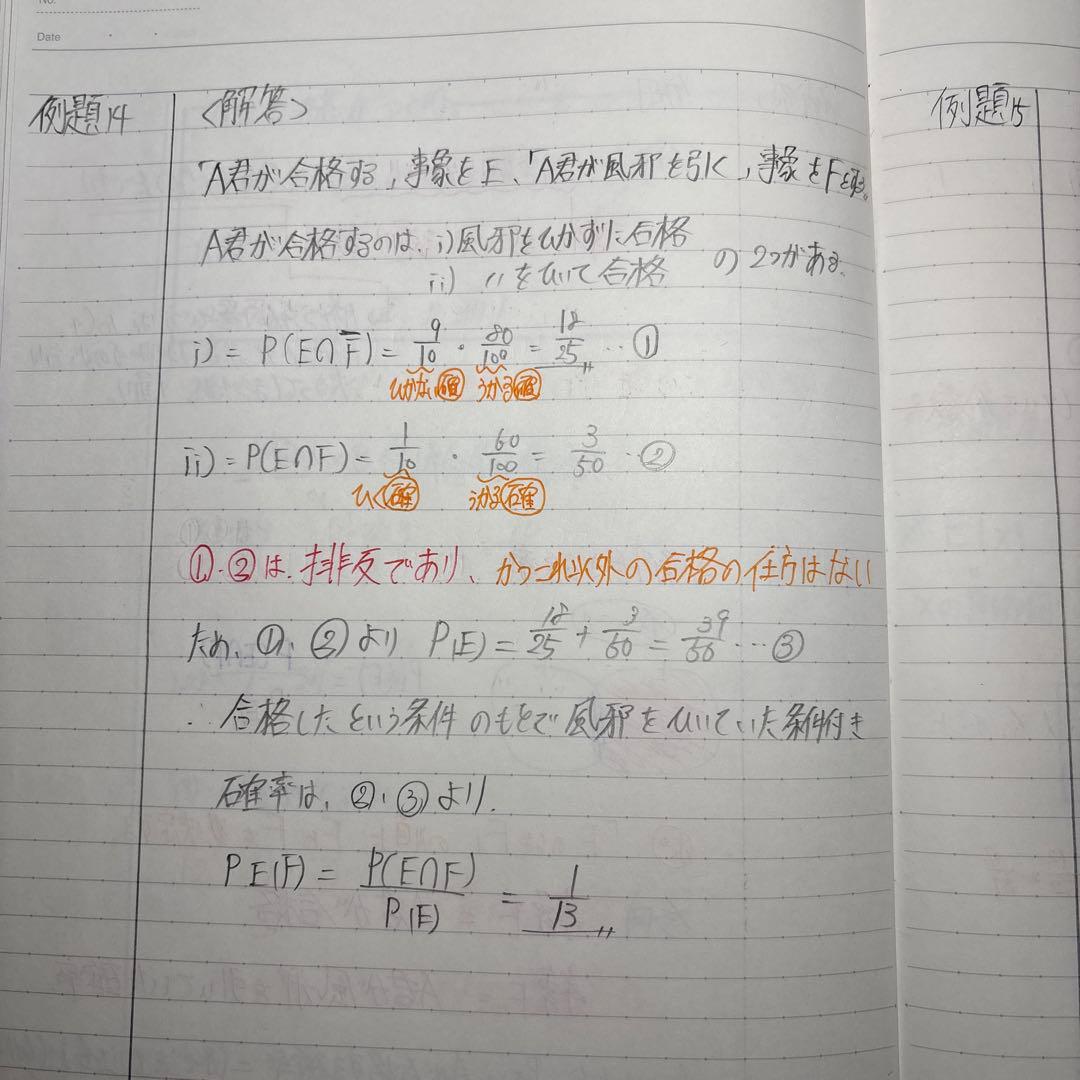 No.
Date
例題14
〈解答〉
例題15
「A君が合格する」事象をE、「A君が風邪を引く」事象をFとする。
A君が合格するのは、i)風邪をひかずに合格
ii) 〃をひいて合格
の2つがある。
i) = P(E∩F̅) = 9/10 · 80/100 = 18/25 〃 … ①
ひかない確 うかる確
ii) = P(E∩F) = 1/10 · 60/100 = 3/50 … ②
ひく確 うかる確
①・②は、排反であり、かつこれ以外の合格の仕方はない
ため、①、②より P(E) = 18/25 + 3/50 = 39/50 … ③
∴ 合格したという条件のもとで風邪をひいていた条件付き
確率は、②・③より、
PE(F) = P(E∩F)/P(E) = 1/13 〃